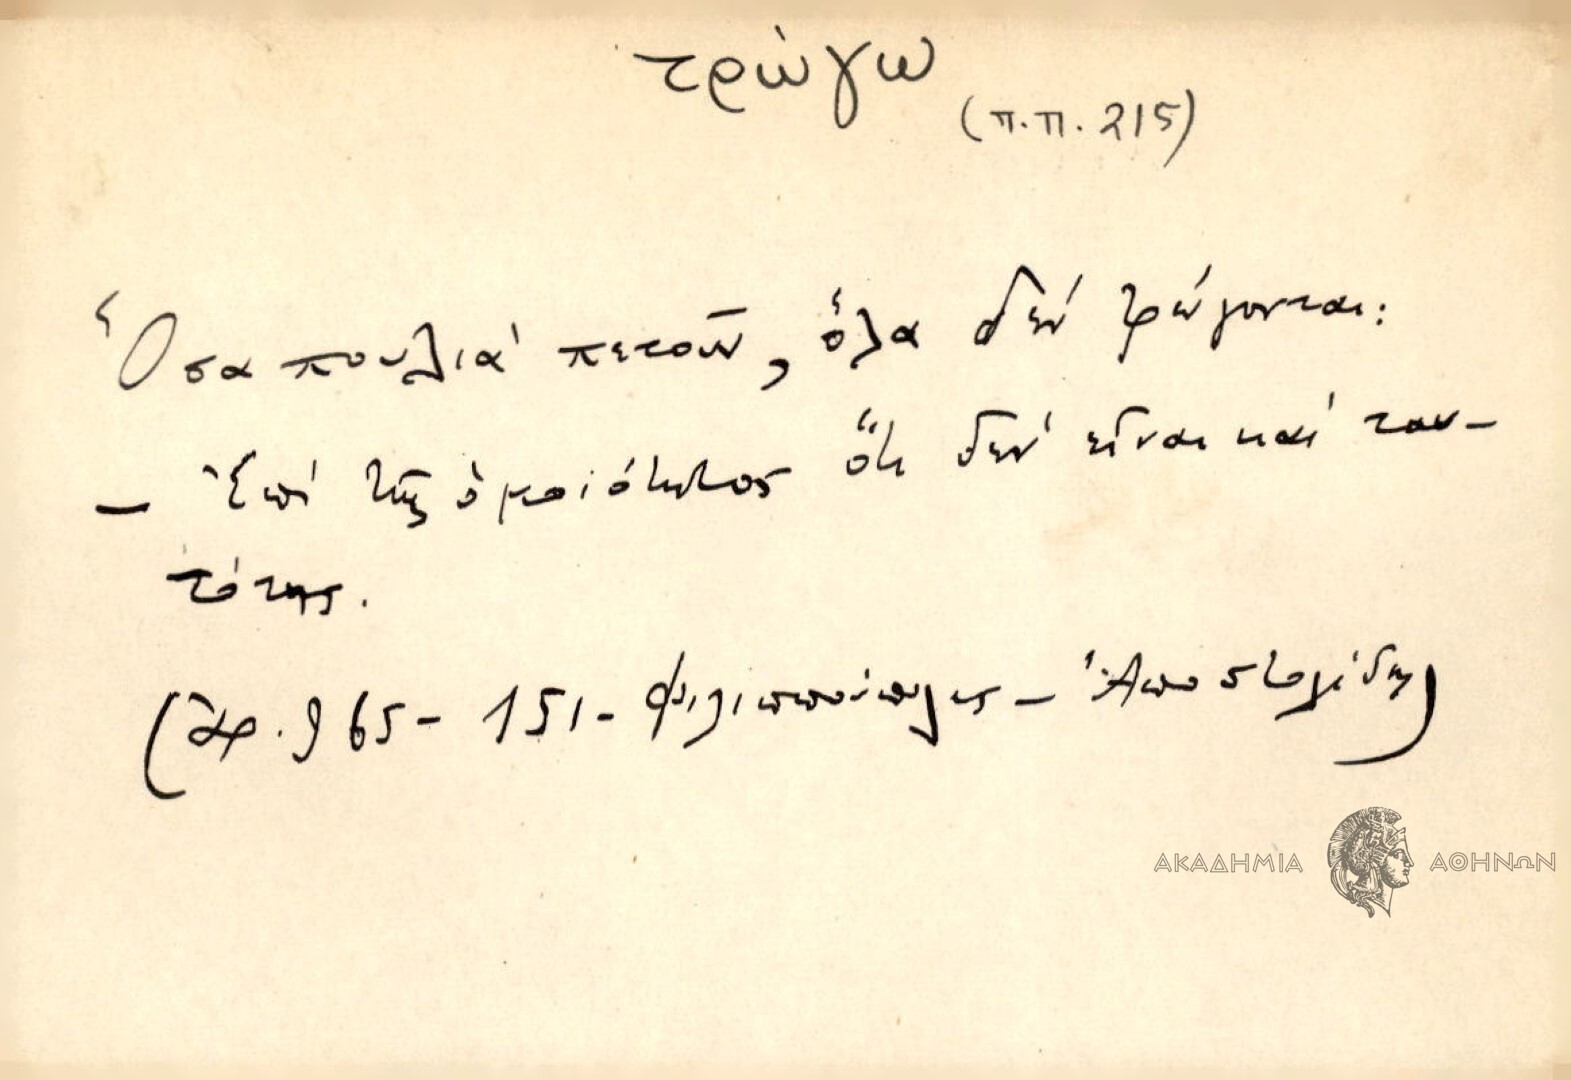 τρώγω
(π.π. 215)
Ὅσα πουλιά πετοῦν, ὅλα δέν τρώγονται:
— Ἐπί τῆς ὁμοιότητος ὅτι δέν εἶναι καί ταυ-
τότης.
(Ἀρ. 965 - 151 - Φιλιππουπόλεως - Ἀποστολίδης)
ΑΚΑΔΗΜΙΑ ΑΘΗΝΩΝ